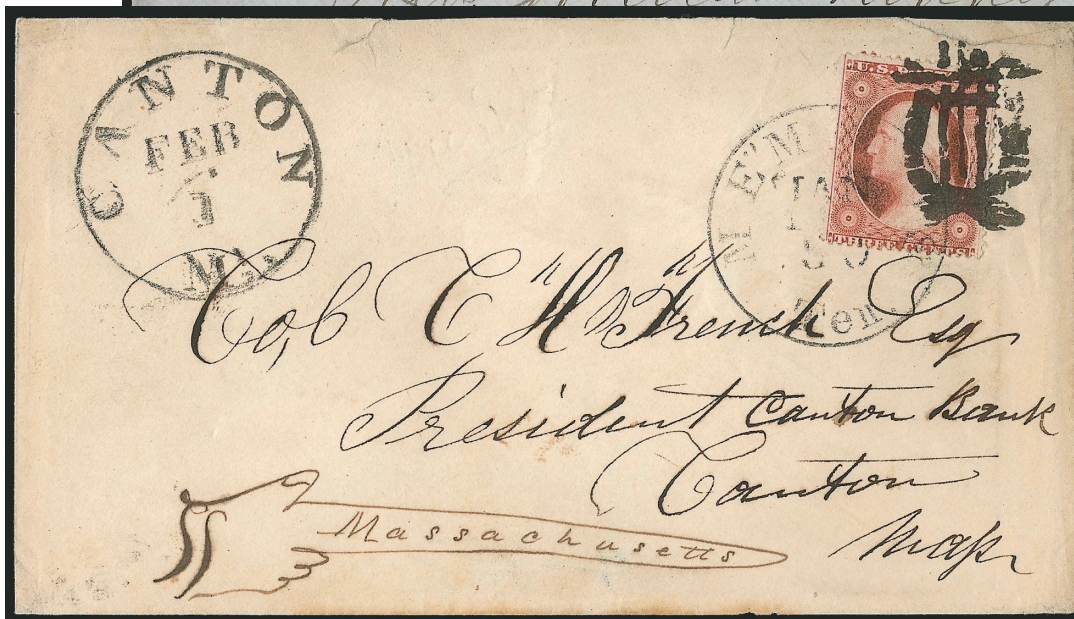 CANTON
FEB
1
U.S.
MEM
JAN
Ten
Col C H French Esq
President Canton Bank
Canton
Mass
Massachusetts